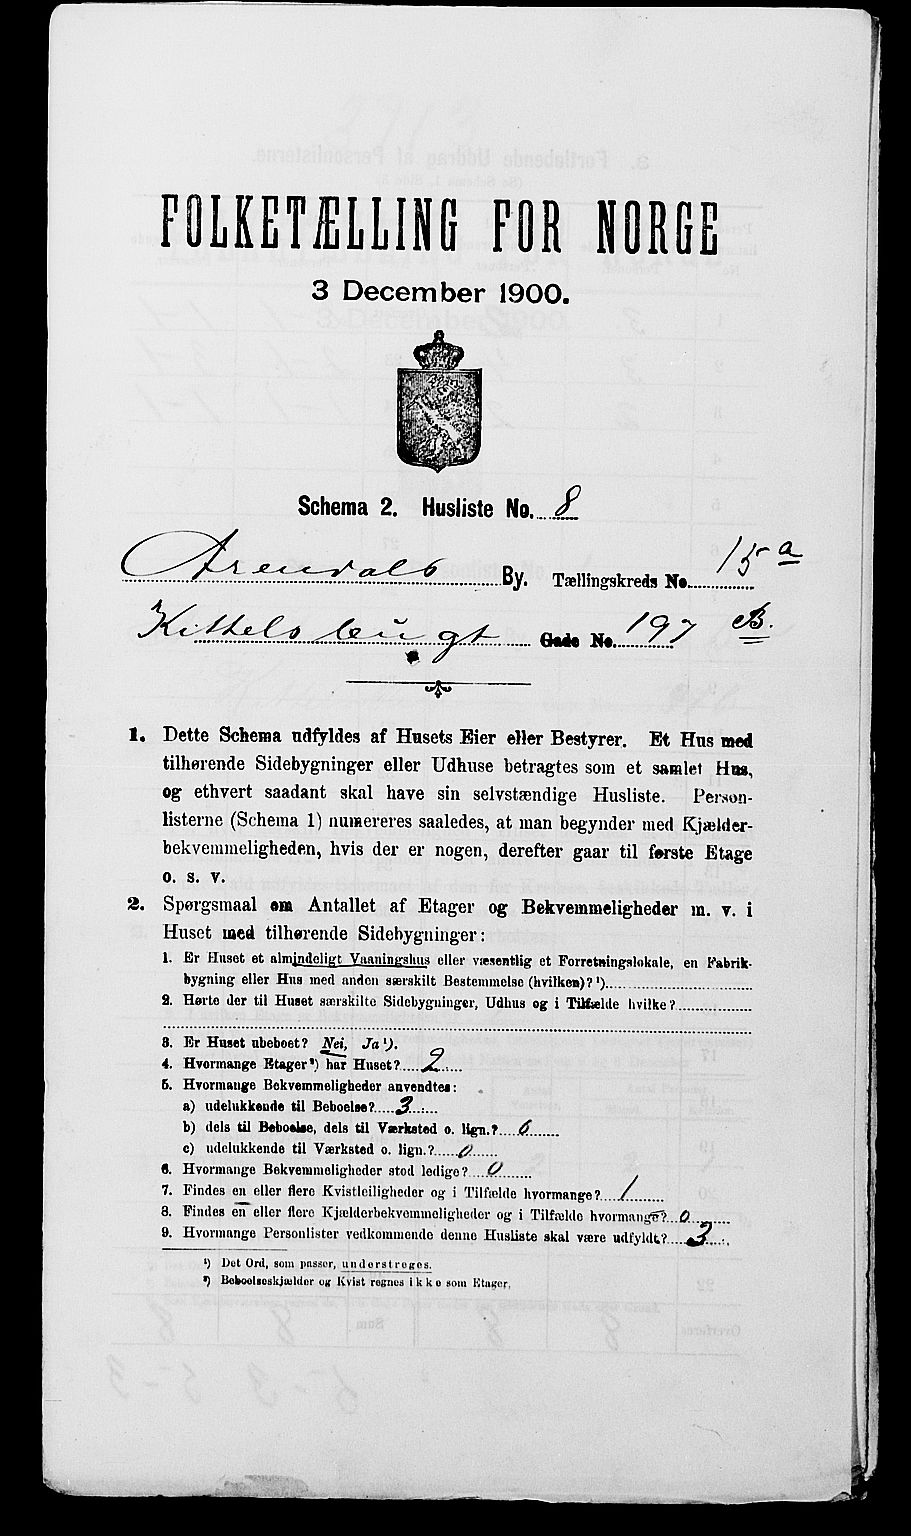 FOLKETÆLLING FOR NORGE
3 December 1900.
Schema 2. Husliste No. 8
Arendals By. Tællingskreds No. 15 a
Kittelsbugt Gade No. 197 B.
1. Dette Schema udfyldes af Husets Eier eller Bestyrer. Et Hus med
tilhørende Sidebygninger eller Udhuse betragtes som et samlet Hus,
og ethvert saadant skal have sin selvstændige Husliste. Person-
listerne (Schema 1) numereres saaledes, at man begynder med Kjælder-
bekvemmeligheden, hvis der er nogen, derefter gaar til første Etage
o. s. v.
2. Spørgsmaal om Antallet af Etager og Bekvemmeligheder m. v. i
Huset med tilhørende Sidebygninger:
1. Er Huset et almindeligt Vaaningshus eller væsentlig et Forretningslokale, en Fabrik-
bygning eller Hus med anden særskilt Bestemmelse (hvilken)? ¹)
2. Hørte der til Huset særskilte Sidebygninger, Udhus og i Tilfælde hvilke?
3. Er Huset ubeboet? Nei, Ja ¹).
4. Hvormange Etager ²) har Huset? 2
5. Hvormange Bekvemmeligheder anvendtes:
a) udelukkende til Beboelse? 3
b) dels til Beboelse, dels til Værksted o. lign.? 0
c) udelukkende til Værksted o. lign.? 0
6. Hvormange Bekvemmeligheder stod ledige? 0
7. Findes en eller flere Kvistleiligheder og i Tilfælde hvormange? 1
8. Findes en eller flere Kjælderbekvemmeligheder og i Tilfælde hvormange? 0
9. Hvormange Personlister vedkommende denne Husliste skal være udfyldt? 3
¹) Det Ord, som passer, understreges.
²) Beboelseskjælder og Kvist regnes ikke som Etager.